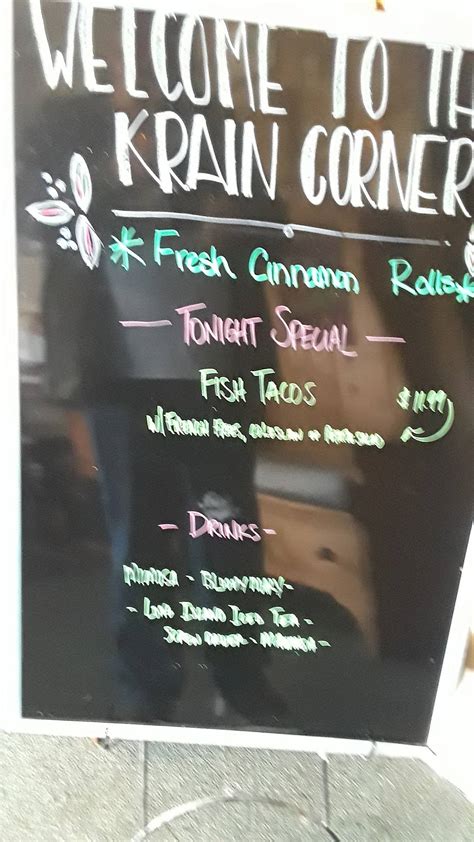 WELCOME TO TH
KRAIN CORNER
* Fresh Cinnamon Rolls *
— TONIGHT SPECIAL —
FISH TACOS $11.99
W/ FRENCH FRIES, COLESLAW or
- DRINKS -
- BLOODY MARY -
- LONG ISLAND ICED TEA -
SCREW DRIVER -